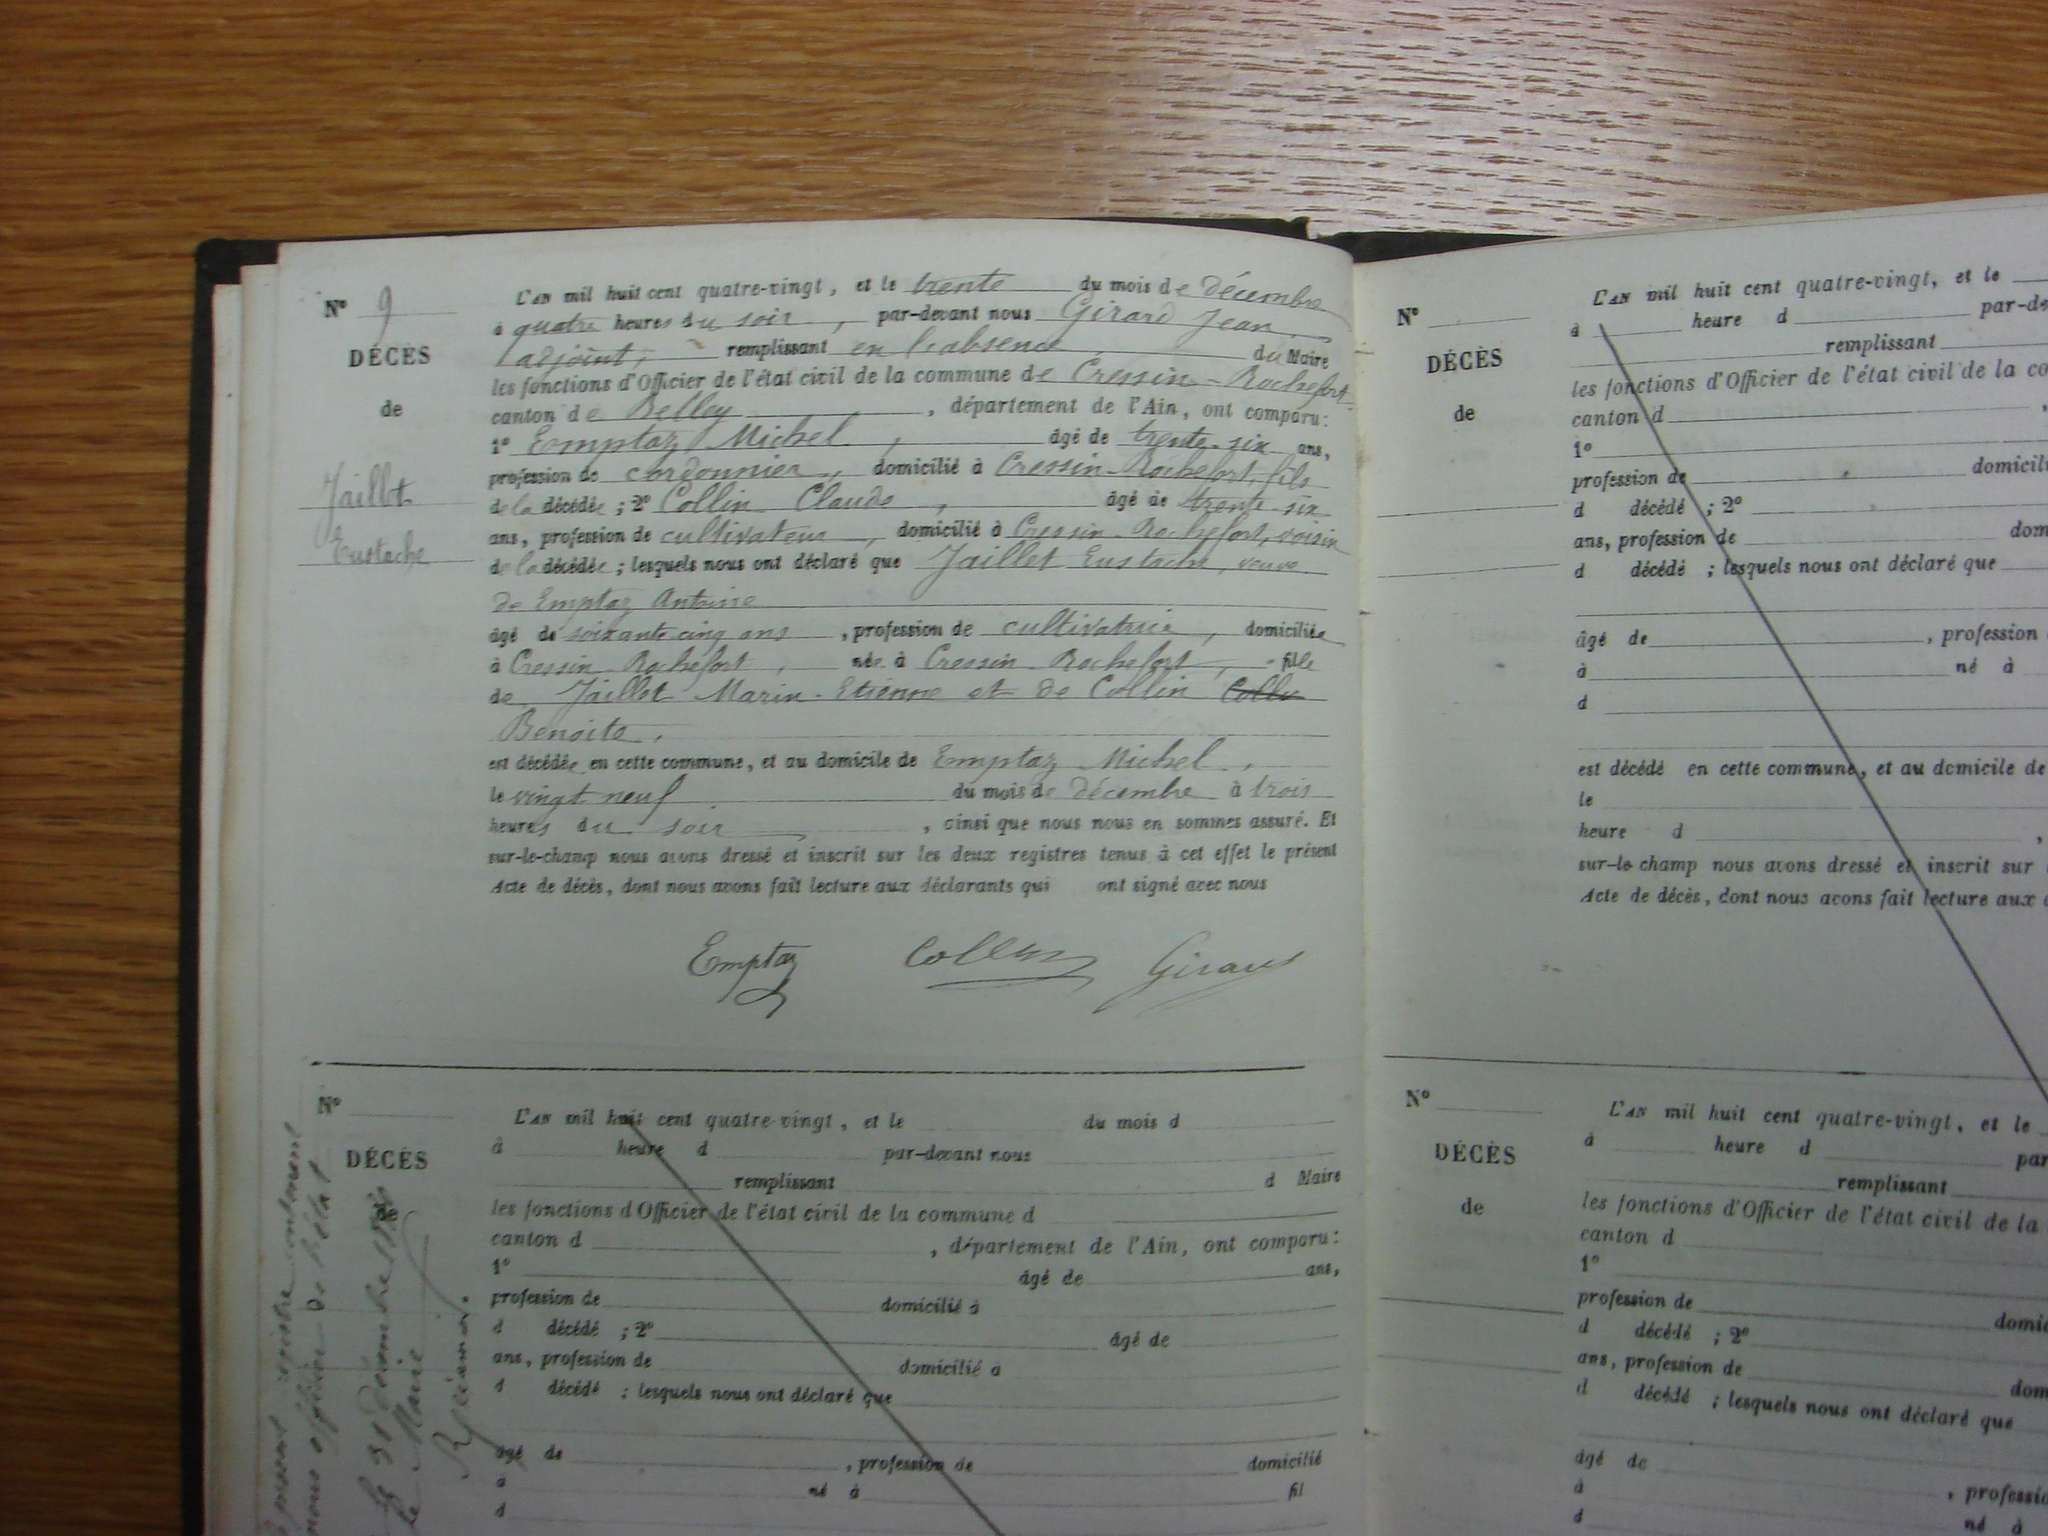 N° 9
DÉCÈS
de
Jaillet
Eustache
L'AN mil huit cent quatre-vingt, et le trente du mois de décembre
à quatre heures du soir, par-devant nous Girard Jean
adjoint, remplissant en l'absence du Maire
les fonctions d'Officier de l'état civil de la commune de Cressin-Rochefort
canton de Belley, département de l'Ain, ont comparu:
1° Emptaz Michel, âgé de trente-six ans,
profession de cordonnier, domicilié à Cressin-Rochefort, fils
de la décédée; 2° Collin Claude, âgé de trente-six
ans, profession de cultivateur, domicilié à Cressin-Rochefort, voisin
de la décédée; lesquels nous ont déclaré que Jaillet Eustache, veuve
de Emptaz Antoine
âgé de soixante cinq ans, profession de cultivatrice, domiciliée
à Cressin-Rochefort, née à Cressin-Rochefort, fille
de Jaillet Marin-Etienne et de Collin Collin
Benoite,
est décédée en cette commune, et au domicile de Emptaz Michel,
le vingt neuf du mois de décembre à trois
heures du soir, ainsi que nous nous en sommes assuré. Et
sur-le-champ nous avons dressé et inscrit sur les deux registres tenus à cet effet le présent
Acte de décès, dont nous avons fait lecture aux déclarants qui ont signé avec nous
Emptaz Collin Girard
N°
DÉCÈS
de
L'AN mil huit cent quatre-vingt, et le du mois d
à heure d par-devant nous
remplissant d Maire
les fonctions d'Officier de l'état civil de la commune d
canton d , département de l'Ain, ont comparu:
1° âgé de ans,
profession de domicilié à
d décédé ; 2° âgé de
ans, profession de domicilié à
d décédé ; lesquels nous ont déclaré que
âgé de , profession de domicilié
à né à fil
d
nous officier de l'état
31 décembre
le Maire
N°
DÉCÈS
de
L'AN mil huit cent quatre-vingt, et le
à heure d par-de
remplissant
les fonctions d'Officier de l'état civil de la co
canton d ,
1°
profession de domicili
d décédé ; 2°
ans, profession de dom
d décédé ; lesquels nous ont déclaré que
âgé de , profession
à né à
d
est décédé en cette commune, et au domicile de
le
heure d ,
sur-le champ nous avons dressé et inscrit sur
Acte de décès, dont nous avons fait lecture aux
N°
DÉCÈS
de
L'AN mil huit cent quatre-vingt, et le
à heure d par
remplissant
les fonctions d'Officier de l'état civil de la
canton d
1°
profession de domic
d décédé ; 2°
ans, profession de dom
d décédé ; lesquels nous ont déclaré que
âgé de
à , professio
d né à